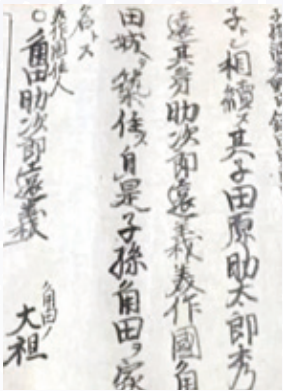 子ト相續ス其子田原助太郎秀
遠其弟助次郎遠義美作國角
田城ヲ築住ス自是子孫角田ヲ家
名トス
美作國住人
○角田助次郎遠義
角田ノ
大祖